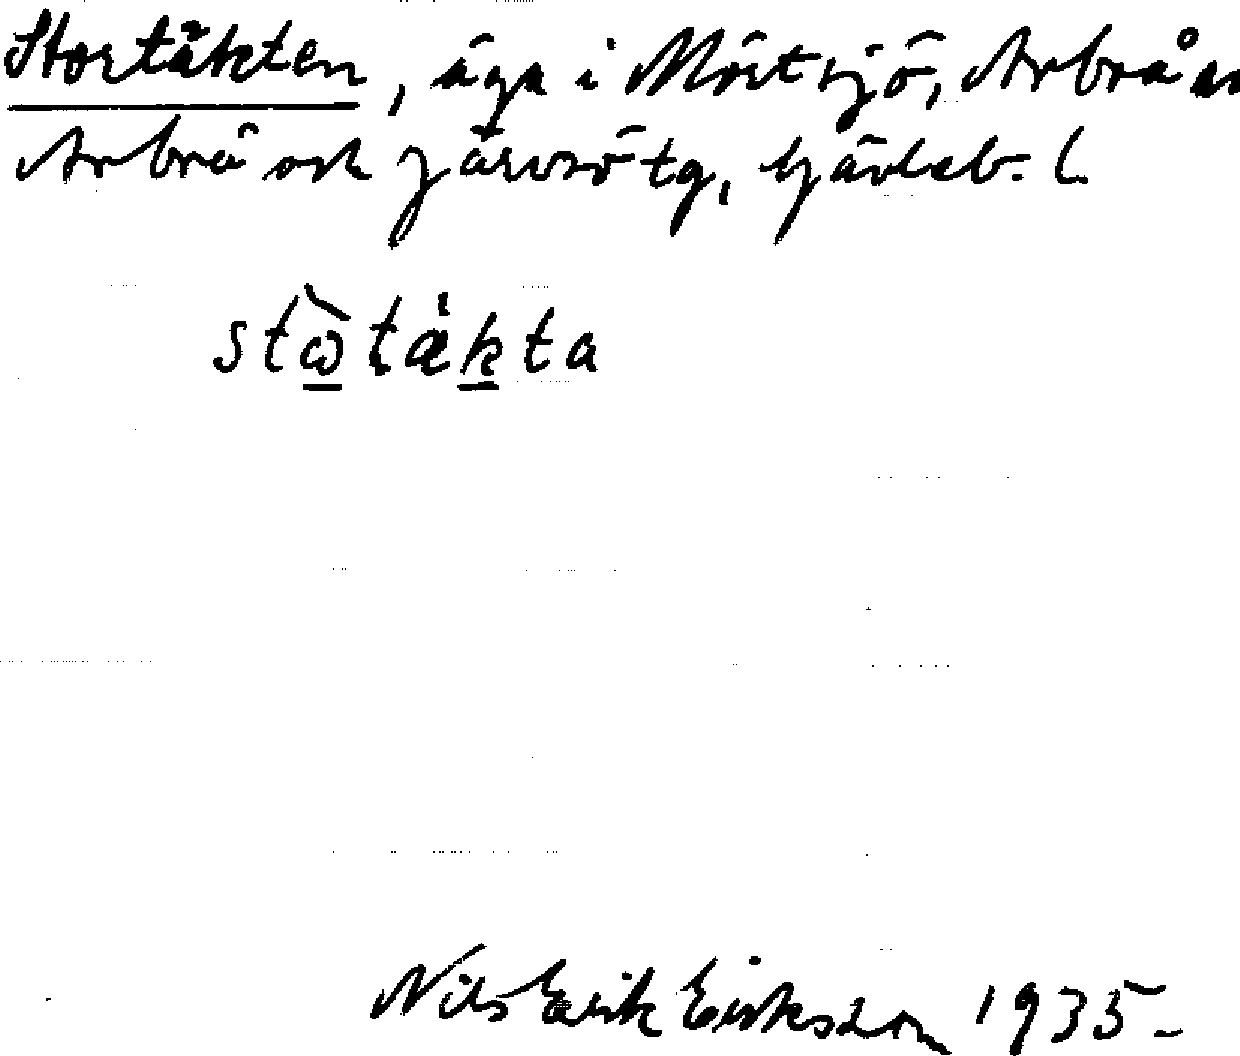 Stortäkten, äga i Mörtsjö, Arbrå
Arbrå och Järvsö tg, Gävleb. l.
stὼ̲tækta
Nils Erik Eriksson 1935